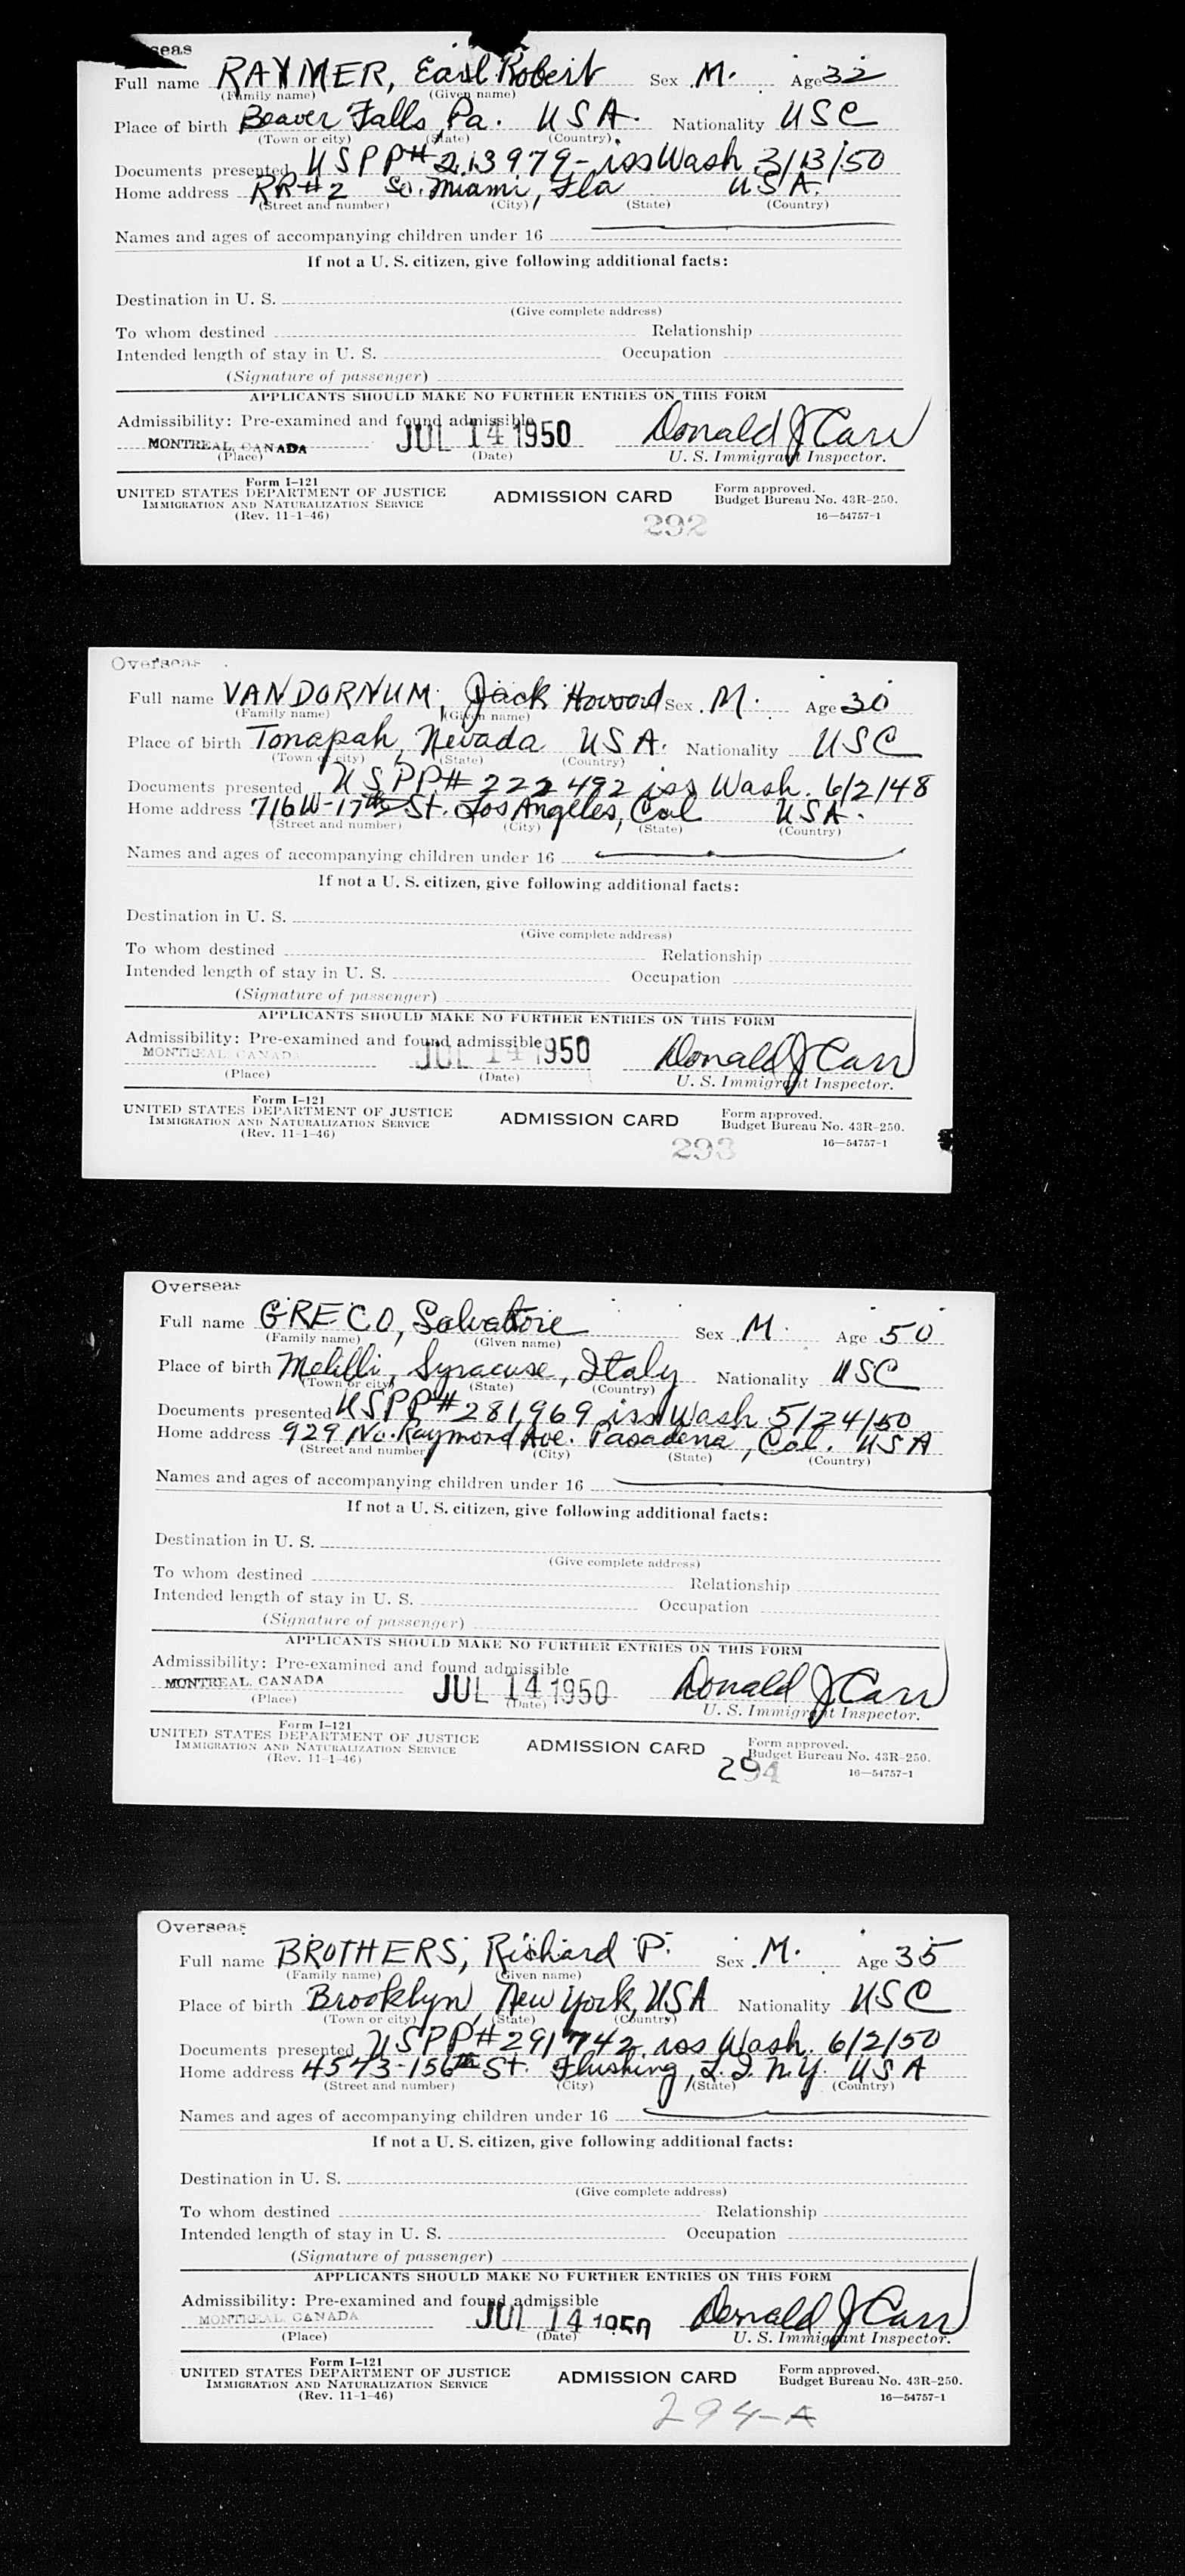 seas
Full name RAYMER, Earl Robert Sex M. Age 32
(Family name) (Given name)
Place of birth Beaver Falls, Pa. USA. Nationality USC
(Town or city) (State) (Country)
Documents presented USPP# 213979 - iss Wash 3/13/50
Home address RR#2 So. Miami, Fla USA.
(Street and number) (City) (State) (Country)
Names and ages of accompanying children under 16
If not a U. S. citizen, give following additional facts:
Destination in U. S.
(Give complete address)
To whom destined Relationship
Intended length of stay in U. S. Occupation
(Signature of passenger)
APPLICANTS SHOULD MAKE NO FURTHER ENTRIES ON THIS FORM
Admissibility: Pre-examined and found admissible
MONTREAL, CANADA JUL 14 1950 Donald J Carr
(Place) (Date) U. S. Immigrant Inspector.
Form I-121
UNITED STATES DEPARTMENT OF JUSTICE ADMISSION CARD Form approved.
IMMIGRATION AND NATURALIZATION SERVICE Budget Bureau No. 43R-250.
(Rev. 11-1-46) 16—54757-1
292
Overseas
Full name VAN DORNUM, Jack Howard Sex M. Age 30
(Family name) (Given name)
Place of birth Tonapah, Nevada USA. Nationality USC
(Town or city) (State) (Country)
Documents presented USPP# 222492 iss Wash. 6/2/48
Home address 716 W-17th St. Los Angeles, Cal USA.
(Street and number) (City) (State) (Country)
Names and ages of accompanying children under 16
If not a U. S. citizen, give following additional facts:
Destination in U. S.
(Give complete address)
To whom destined Relationship
Intended length of stay in U. S. Occupation
(Signature of passenger)
APPLICANTS SHOULD MAKE NO FURTHER ENTRIES ON THIS FORM
Admissibility: Pre-examined and found admissible
MONTREAL CANADA JUL 14 1950 Donald J Carr
(Place) (Date) U. S. Immigrant Inspector.
Form I-121
UNITED STATES DEPARTMENT OF JUSTICE ADMISSION CARD Form approved.
IMMIGRATION AND NATURALIZATION SERVICE Budget Bureau No. 43R-250.
(Rev. 11-1-46) 16—54757-1
293
Overseas
Full name GRECO, Salvatore Sex M. Age 50
(Family name) (Given name)
Place of birth Melilli, Syracuse, Italy Nationality USC
(Town or city) (State) (Country)
Documents presented USPP# 281969 iss Wash 5/24/50
Home address 929 No. Raymond Ave. Pasadena, Cal. USA
(Street and number) (City) (State) (Country)
Names and ages of accompanying children under 16
If not a U. S. citizen, give following additional facts:
Destination in U. S.
(Give complete address)
To whom destined Relationship
Intended length of stay in U. S. Occupation
(Signature of passenger)
APPLICANTS SHOULD MAKE NO FURTHER ENTRIES ON THIS FORM
Admissibility: Pre-examined and found admissible
MONTREAL, CANADA JUL 14 1950 Donald J Carr
(Place) (Date) U. S. Immigrant Inspector.
Form I-121
UNITED STATES DEPARTMENT OF JUSTICE ADMISSION CARD Form approved.
IMMIGRATION AND NATURALIZATION SERVICE Budget Bureau No. 43R-250.
(Rev. 11-1-46) 16—54757-1
294
Overseas
Full name BROTHERS, Richard P. Sex M. Age 35
(Family name) (Given name)
Place of birth Brooklyn, New York, USA Nationality USC
(Town or city) (State) (Country)
Documents presented USPP# 291742 iss Wash. 6/2/50
Home address 4543-156th St. Flushing, L.I. N.Y. USA
(Street and number) (City) (State) (Country)
Names and ages of accompanying children under 16
If not a U. S. citizen, give following additional facts:
Destination in U. S.
(Give complete address)
To whom destined Relationship
Intended length of stay in U. S. Occupation
(Signature of passenger)
APPLICANTS SHOULD MAKE NO FURTHER ENTRIES ON THIS FORM
Admissibility: Pre-examined and found admissible
MONTREAL, CANADA JUL 14 1950 Donald J Carr
(Place) (Date) U. S. Immigrant Inspector.
Form I-121
UNITED STATES DEPARTMENT OF JUSTICE ADMISSION CARD Form approved.
IMMIGRATION AND NATURALIZATION SERVICE Budget Bureau No. 43R-250.
(Rev. 11-1-46) 16—54757-1
294-A